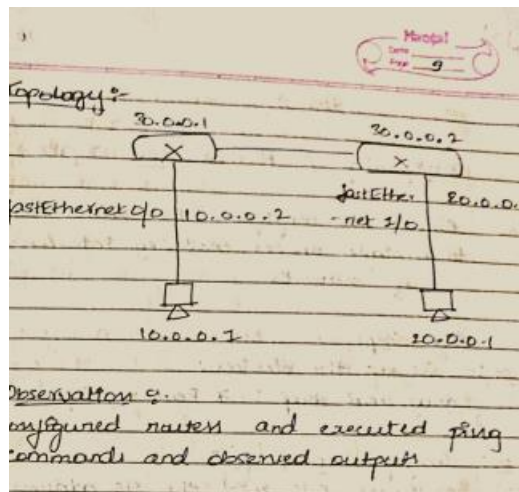 Mangal
Date
Page 9
Topology :-
30.0.0.1
30.0.0.2
fastEthernet 0/0 10.0.0.2
fastEther 20.0.0.
-net 1/0
10.0.0.1
20.0.0.1
Observation :-
onfigured routers and executed ping
commands and observed outputs